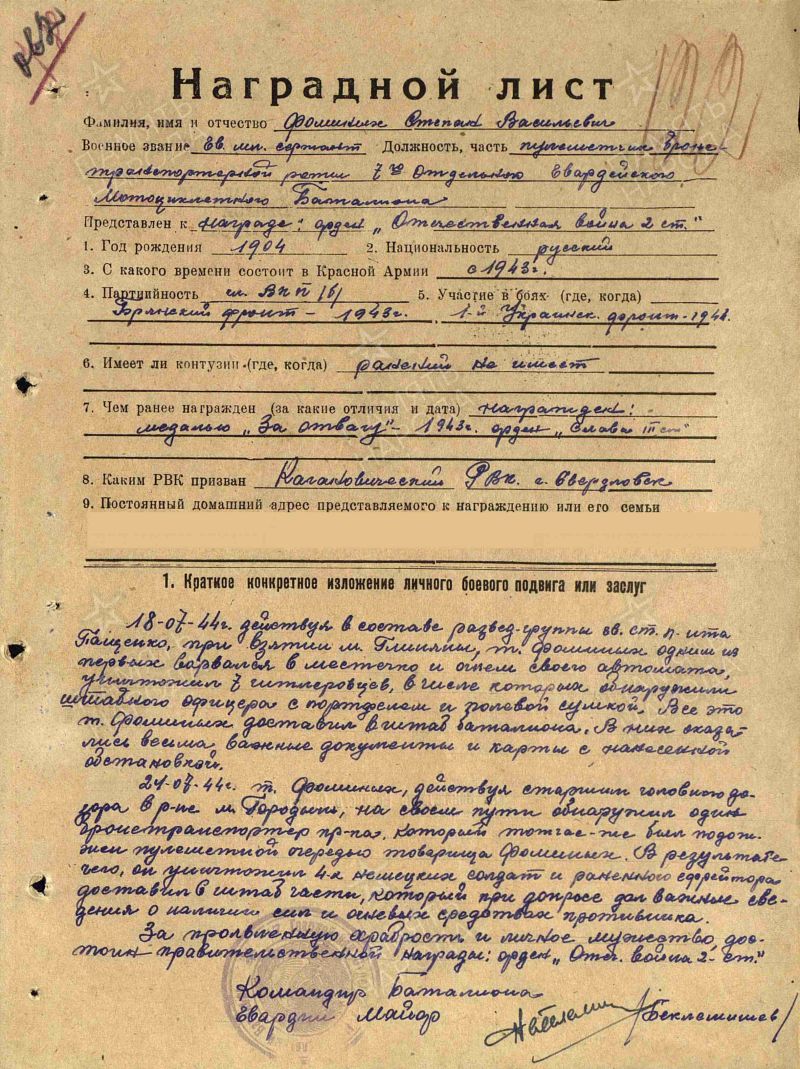 Наградной лист
Фамилия, имя и отчество Фоминых Степан Васильевич
Военное звание Гв. мл. сержант Должность, часть пулеметчик Броне-
транспортерной роты 7го Отдельного Гвардейского
Мотоциклетного Баталиона
Представлен к награде: орден „Отечественная война 2 ст."
1. Год рождения 1904 2. Национальность русский
3. С какого времени состоит в Красной Армии с 1943г.
4. Партийность чл. ВКП(б) 5. Участие в боях (где, когда)
Брянский фронт – 1943г. 1-й Украинск. фронт-1944.
6. Имеет ли контузии (где, когда) ранений не имеет
7. Чем ранее награжден (за какие отличия и дата) награжден:
медалью „За отвагу" – 1943г. орден „Слава III ст"
8. Каким РВК призван Кагановический РВК. г. Свердловск
9. Постоянный домашний адрес представляемого к награждению или его семьи
1. Краткое конкретное изложение личного боевого подвига или заслуг
18-07-44г. действуя в составе развед-группы гв. ст. л-нта
Гащенко, при взятии м. Глиняны, т. Фоминых одним из
первых ворвался в местечко и огнем своего автомата,
уничтожил 7 гитлеровцев, в числе которых обнаружили
штабного офицера с портфелем и полевой сумкой. Все это
т. Фоминых доставил в штаб баталиона. В них оказа-
лись весьма важные документы и карты с нанесенной
обстановкой.
21-07-44г. т. Фоминых, действуя старшим головного до-
зора в р-не м. Городыш, на своем пути обнаружил один
бронетранспортер пр-ка, который тотчас-же был подож-
жен пулеметной очередью товарища Фоминых. В результате
чего, он уничтожил 4-х немецких солдат и раненного ефрейтора
доставил в штаб части, который при допросе дал важные све-
дения о наличии сил и огневых средствах противника.
За проявленную храбрость и личное мужество, дос-
тоин правительственной награды: орден „Отеч. война 2- ст."
Командир Баталиона
Гвардии Майор /Беклемишев/